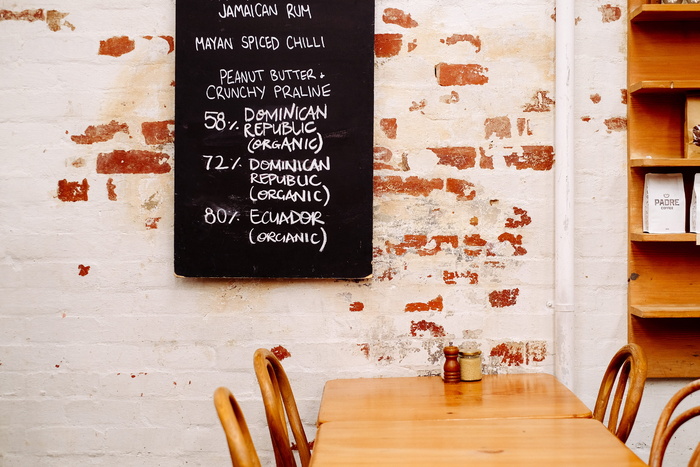 JAMAICAN RUM
MAYAN SPICED CHILLI
PEANUT BUTTER +
CRUNCHY PRALINE
58% DOMINICAN
REPUBLIC
(ORGANIC)
72% DOMINICAN
REPUBLIC
(ORGANIC)
80% ECUADOR
(ORGANIC)
PADRE
COFFEE